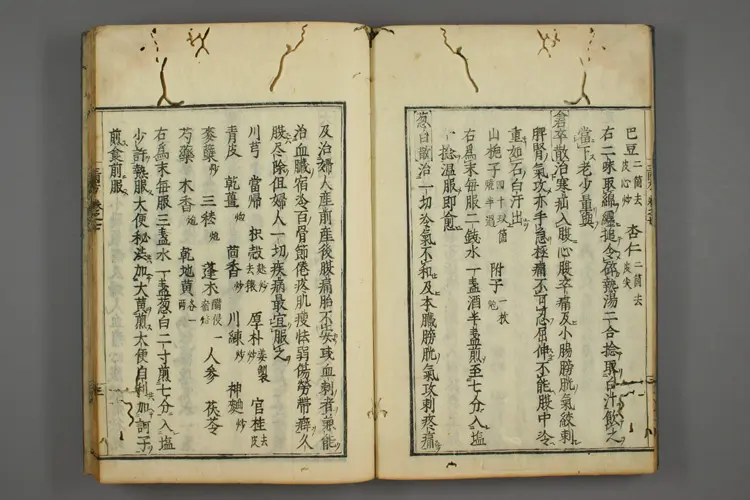 巴豆二箇去皮心炒 杏仁二箇去皮尖
右二味取綿纏搥令碎熱湯二合捻取白汁飲之
當下老少量與
倉卒散治寒疝入腹心腹卒痛及小腸膀胱氣絞刺
脾腎氣攻亦手急極痛不可忍屈伸不能腹中冷
重如石白汗出
山梔子四十玖箇燒半過 附子一枚炮
右為末每服二錢水一盞酒半盞煎至七分入塩
一捻溫服即愈
葱白散治一切冷氣不和及本臟膀胱氣攻刺疼痛
及治婦人產前產後腹痛胎不安或血刺者兼能
治血臟宿冷百骨節倦疼肌瘦怯弱傷勞帶癖久
服尽除但婦人一切疾病最宜服之
川芎 當歸 枳殼去穰麩炒 厚朴姜製 官桂去皮
青皮 乾薑炮 茴香炒 川練炒 神麴炒
麥蘗炒 三稜炮 蓬朮醋浸一宿焙 人參 茯苓
芍藥 木香炮 乾地黃各一兩
右為末每服三盞水一盞葱白二寸煎七分入塩
少許熱服大便秘澁加大黃煎大便自利加訶子
煎食前服